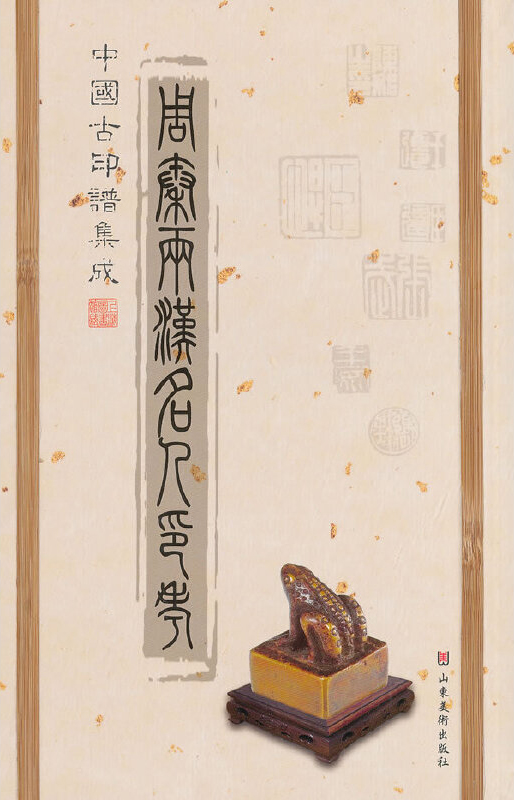 中國古印譜集成
周秦兩漢名人印考
山東美術出版社